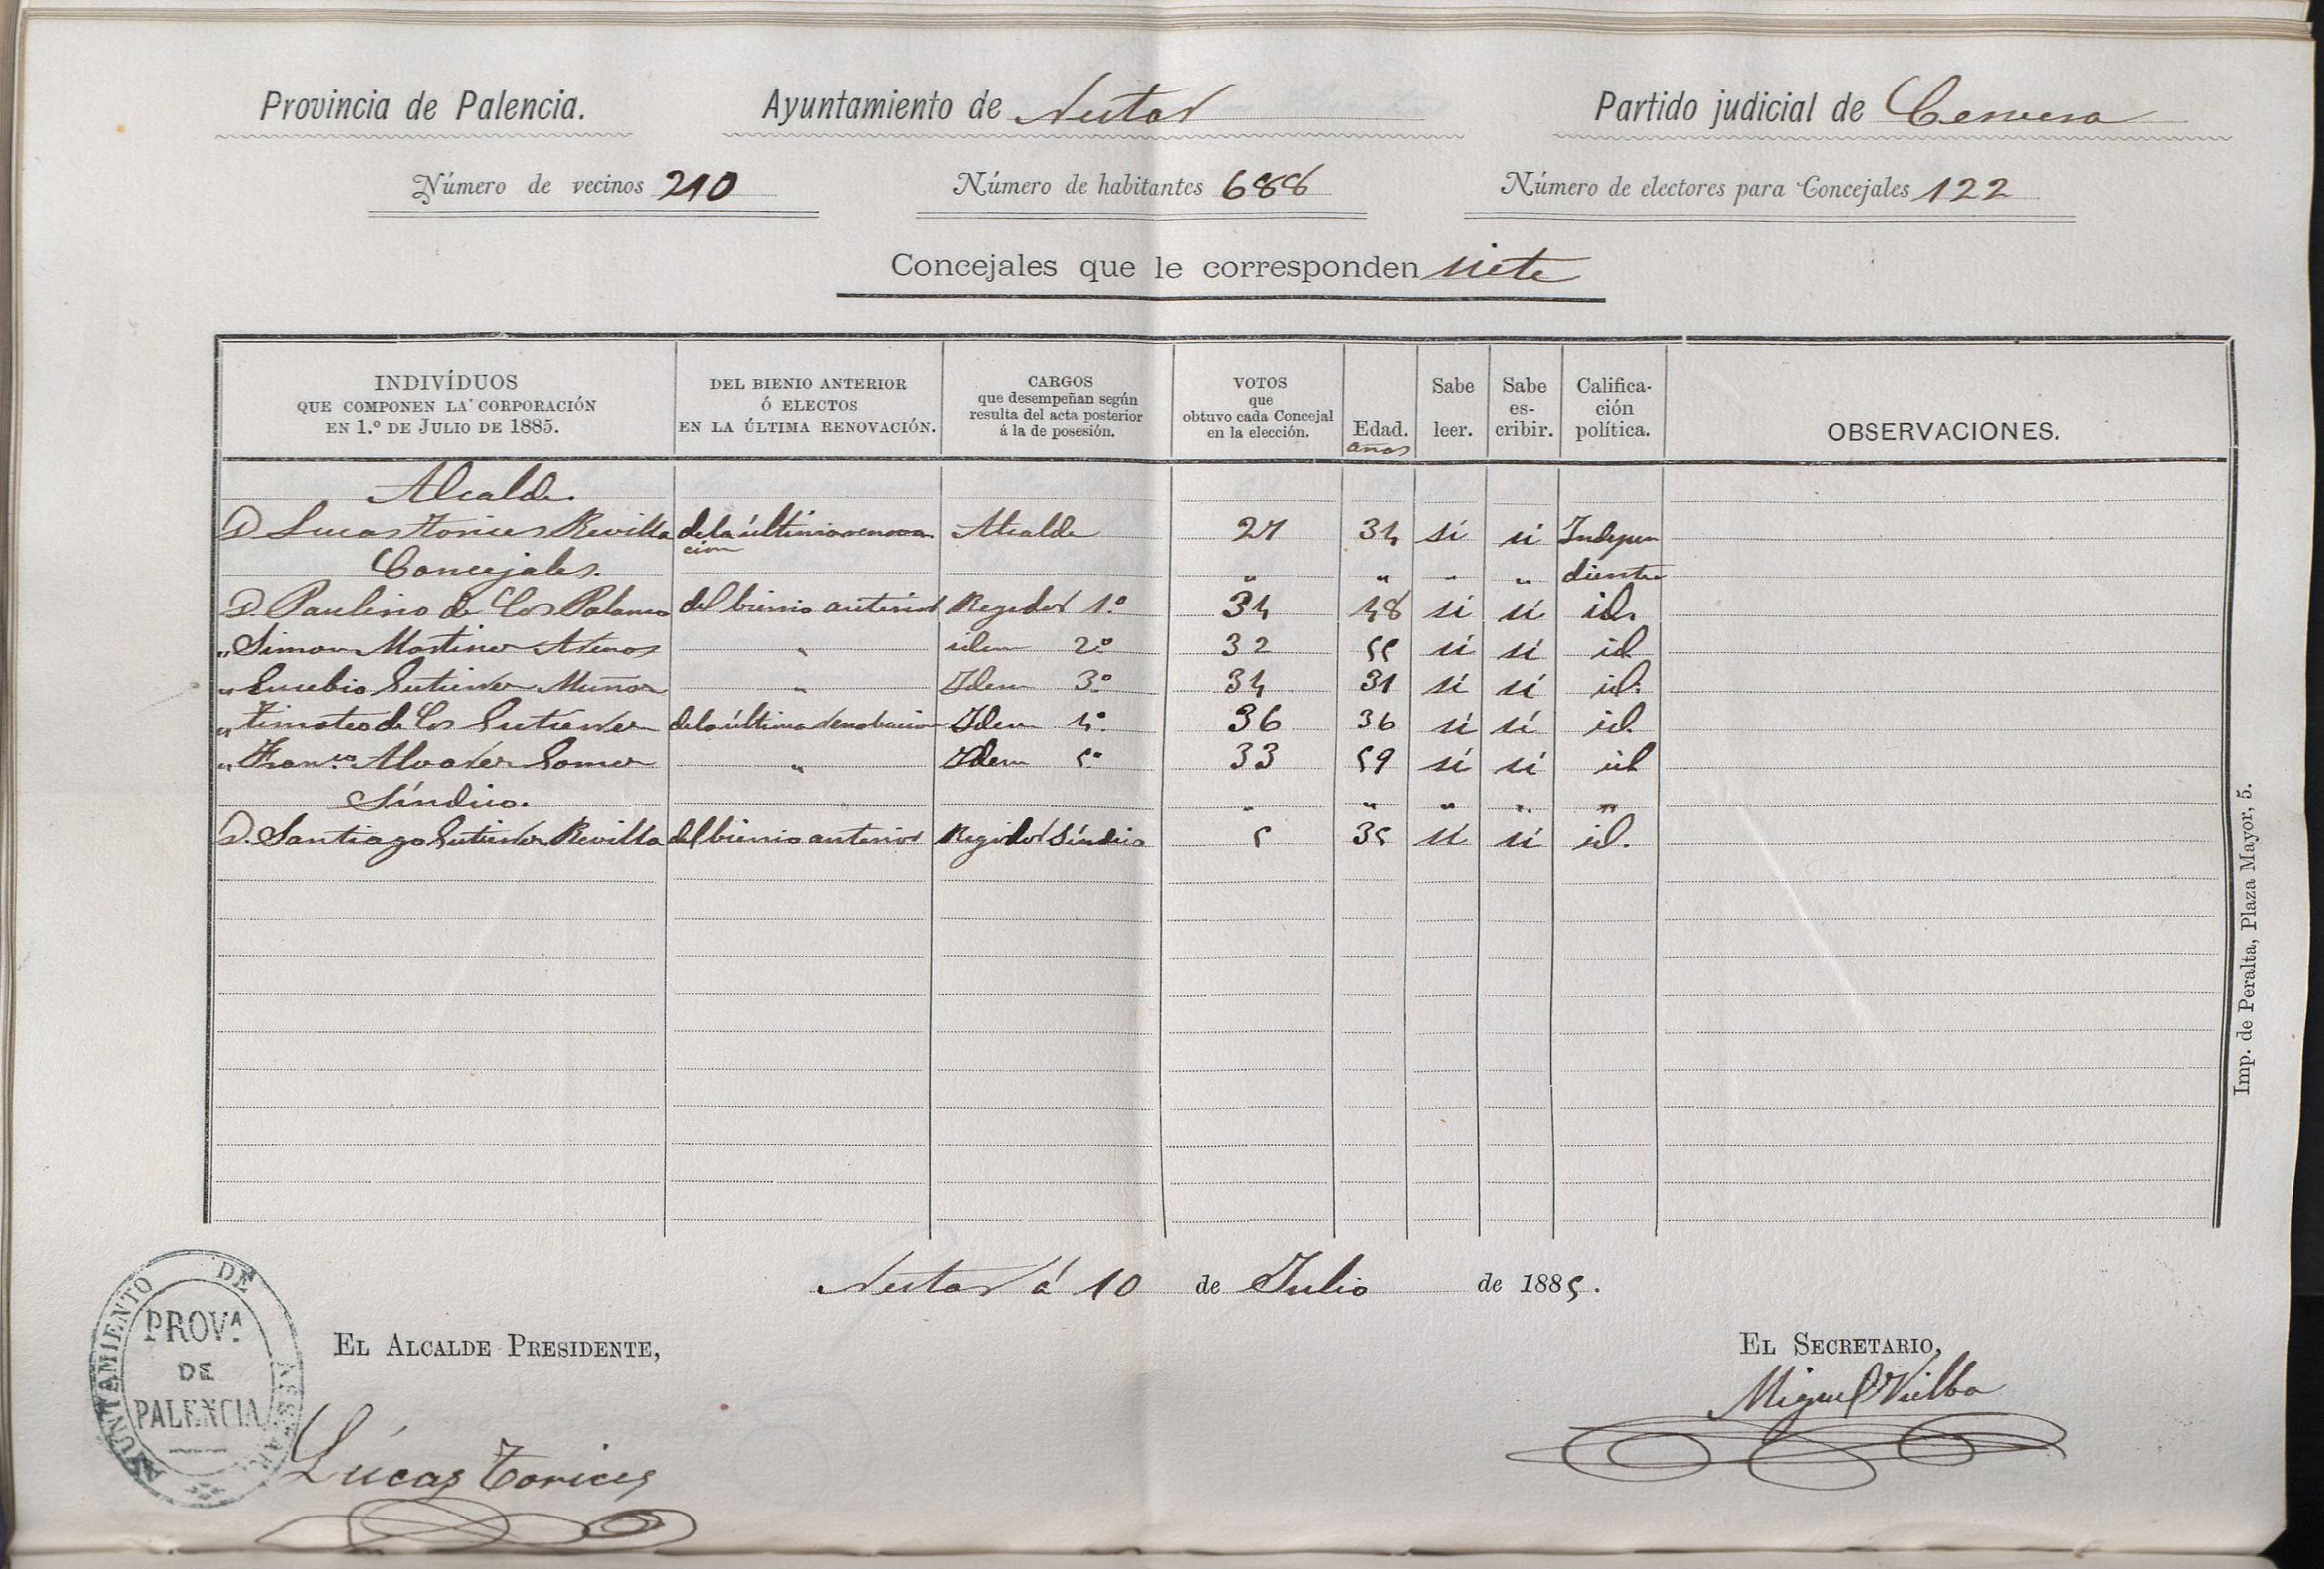 Provincia de Palencia. Ayuntamiento de Nestar Partido judicial de Cervera
Número de vecinos 210 Número de habitantes 688 Número de electores para Concejales 122
Concejales que le corresponden siete
INDIVÍDUOS QUE COMPONEN LA CORPORACIÓN EN 1.º DE JULIO DE 1885. DEL BIENIO ANTERIOR Ó ELECTOS EN LA ÚLTIMA RENOVACIÓN. CARGOS que desempeñan según resulta del acta posterior á la de posesión. VOTOS que obtuvo cada Concejal en la elección. Edad. años Sabe leer. Sabe es-cribir. Califica-ción política. OBSERVACIONES.
Alcalde.
D Lucas Torices Revilla de la última renovacion Alcalde 27 34 si si Indepen
Concejales. " " " " diente
D. Paulino de Cos Polanco del bienio anterior Regidor 1.º 34 48 si si id.
" Simon Martinez Atenos " idem 2º 32 55 si si id
" Eusebio Gutierrez Muñoz " Idem 3.º 34 31 si si id.
" Timoteo de Cos Gutierrez de la última renobacion Idem 4º. 36 36 si si id.
" Franco Alvarez Gomez " Idem 5º 33 59 si si id
Síndico. " " " " "
D. Santiago Gutierrez Revilla del bienio anterior Regidor Síndico 5 35 si si id.
Nestar á 10 de Julio de 1885.
EL ALCALDE PRESIDENTE, EL SECRETARIO,
Lúcas Torices Miguel Vielba
AYUNTAMIENTO DE NESTAR
PROVA
DE
PALENCIA
Imp. de Peralta, Plaza Mayor, 5.